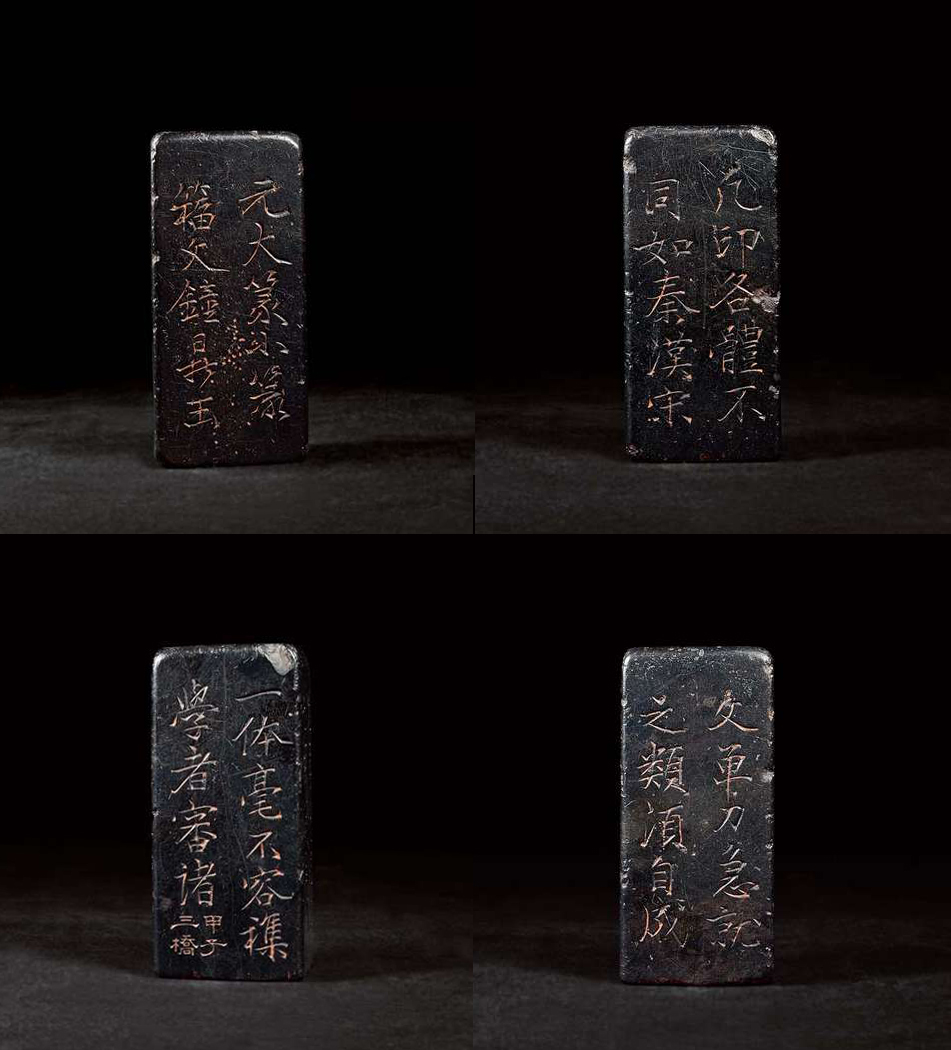 凡印各體不
同如秦漢宋
元大篆小篆
籀文鐘鼎玉
文單刀急就
之類須自成
一体毫不容襍
學者審諸
甲子
三橋